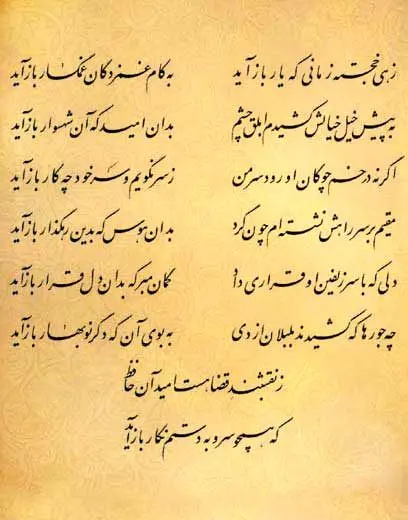 زهی خجسته زمانی که یار بازآید به کام غمزدگان غمگسار بازآید
به پیش خیل خیالش کشیدم ابلق چشم بدان امید که آن شهسوار بازآید
اگر نه در خم چوگان او رود سر من ز سر نگویم و سر خود چه کار بازآید
مقیم بر سر راهش نشسته‌ام چون گرد بدان هوس که بدین رهگذار بازآید
دلی که با سر زلفین او قراری داد گمان مبر که بدان دل قرار بازآید
چه جورها که کشیدند بلبلان از دی به بوی آن که دگر نوبهار بازآید
ز نقشبند قضا هست امید آن حافظ
که همچو سرو به دستم نگار بازآید